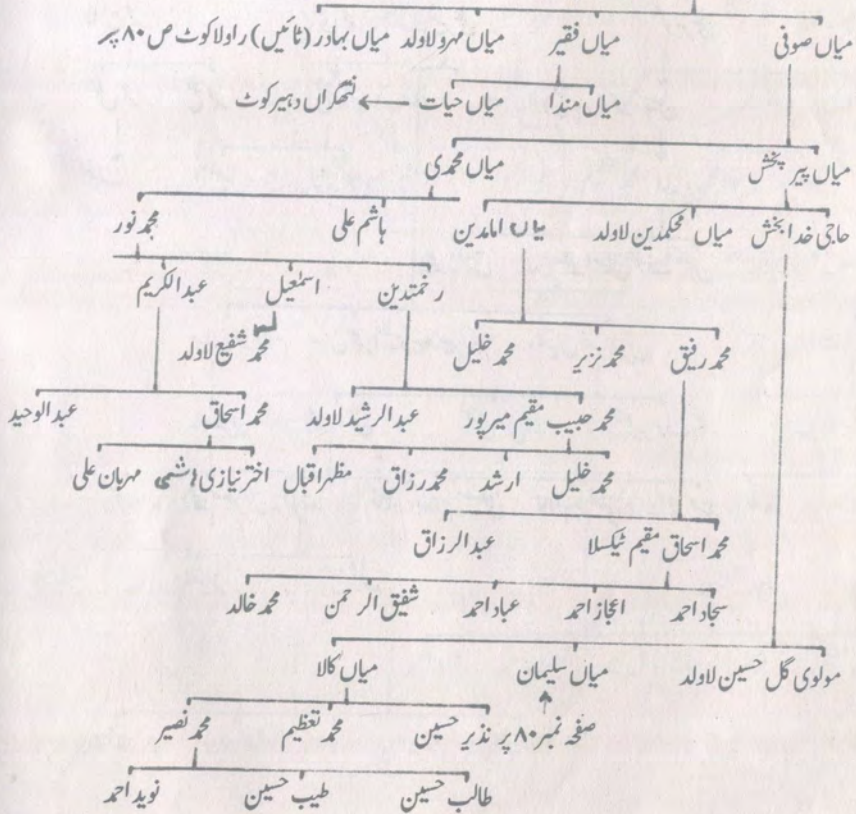 میاں صوفی میاں فقیر میاں مہرولاولد میاں بہادر (ٹائیں) راولاکوٹ ص ۸۰ پر
میاں مندا میاں حیات ← نتھکراں دہیرکوٹ
میاں پیر بخش میاں محمدی
حاجی خدا بخش میاں محکمدین لاولد میاں امامدین ہاشم علی محمد نور
رحمتدین اسمٰعیل عبدالکریم
محمد رفیق محمد نزیر محمد خلیل محمد شفیع لاولد
محمد حبیب مقیم میرپور عبدالرشید لاولد محمد اسحاق عبدالوحید
محمد خلیل ارشد محمد رزاق مظہر اقبال اختر نیازی ہاشمی مہربان علی
محمد اسحاق مقیم ٹیکسلا عبدالرزاق
سجاد احمد اعجاز احمد عباد احمد شفیق الرحمن محمد خالد
مولوی گل حسین لاولد میاں سلیمان میاں کالا
صفحہ نمبر ۸۰ پر نذیر حسین محمد تعظیم محمد نصیر
طالب حسین طیب حسین نوید احمد